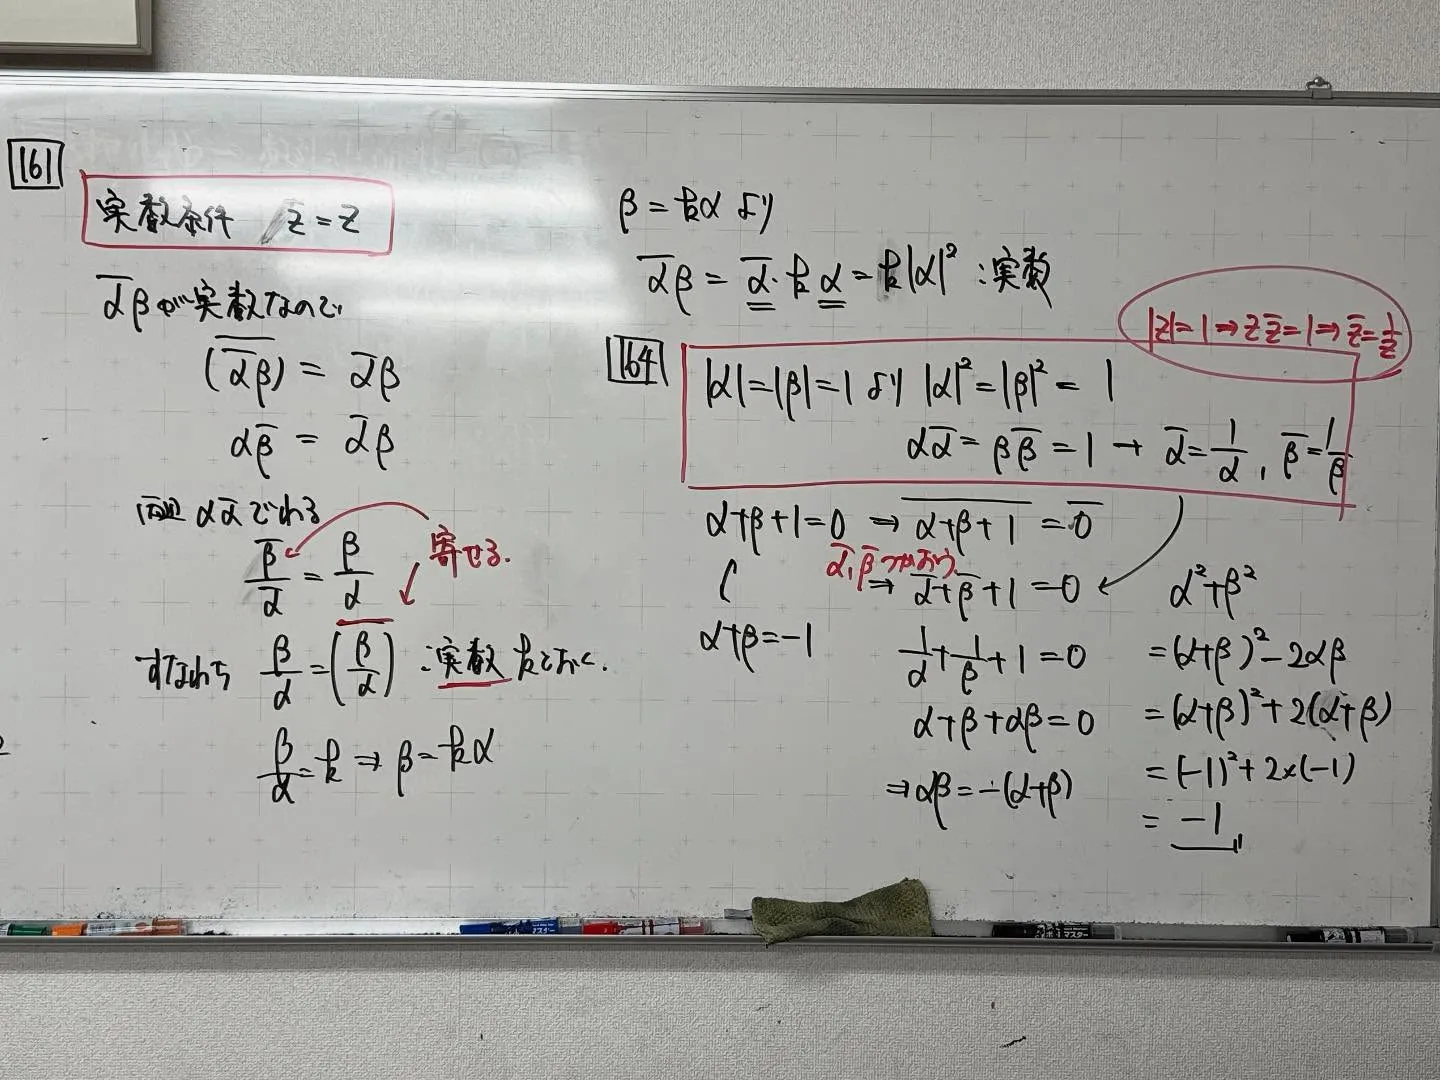 161
実数条件 z̅ = z
α̅β が実数なので
(α̅β)‾ = α̅β
αβ̅ = α̅β
両辺 αα̅ でわる
β̅/α̅ = β/α
寄せる.
すなわち β/α = (β/α)‾ :実数 kとおく.
β/α = k ⇒ β = kα
β = kα より
α̅β = α̅・kα = k|α|² :実数
|z|=1 ⇒ zz̅=1 ⇒ z̅=1/z
164
|α|=|β|=1 より |α|²=|β|²= 1
αα̅ = ββ̅ = 1 → α̅=1/α, β̅=1/β
α+β+1=0 ⇒ (α+β+1)‾ = 0̅
α̅,β̅つかおう
⇒ α̅+β̅+1=0
α+β=-1
1/α+1/β+1=0
α+β+αβ=0
⇒αβ=-(α+β)
α²+β²
=(α+β)²-2αβ
=(α+β)²+2(α+β)
=(-1)²+2×(-1)
= -1
マスター
マスター